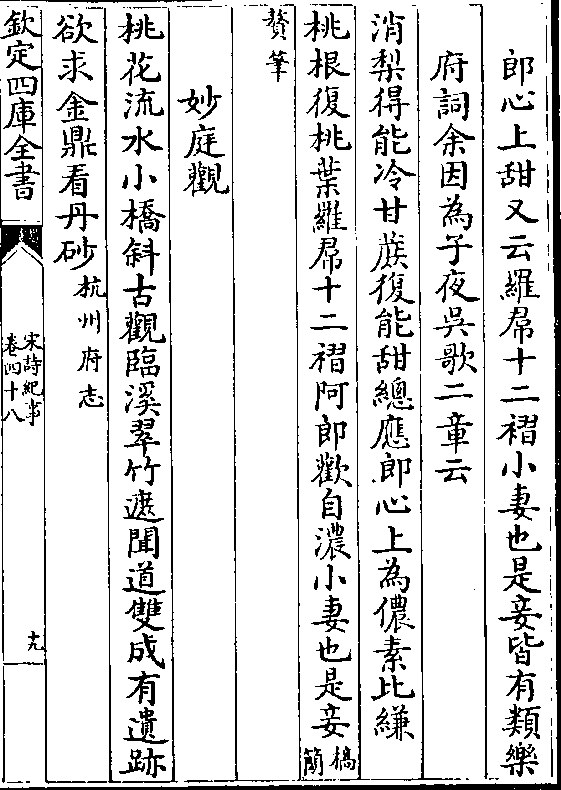 郎心上甜又云羅帬十二褶小妻也是妾皆有類樂
府詞余因為子夜吳歌二章云
消梨得能冷甘蔗復能甜總應郎心上為儂素比縑
桃根復桃葉羅帬十二褶阿郎歡自濃小妻也是妾槁簡
贅筆
妙庭觀
桃花流水小橋斜古觀臨溪翠竹遮聞道雙成有遺跡
欲求金鼎看丹砂杭州府志
欽定四庫全書
宋詩紀事
卷四十八
十九